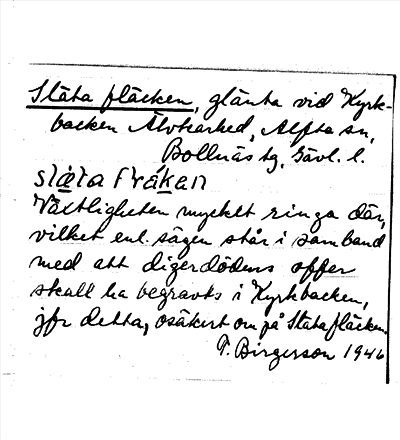 Släta fläcken, glänta vid Kyrk-
backen Älvkarhed, Alfta sn,
Bollnäs tg, Gävl. l.
slæta frákan
Växtligheten mycket ringa där,
vilket enl. sägen står i samband
med att digerdödens offer
skall ha begravts i Kyrkbacken,
jfr detta, osäkert om på Släta fläcken
T. Birgerson 1946